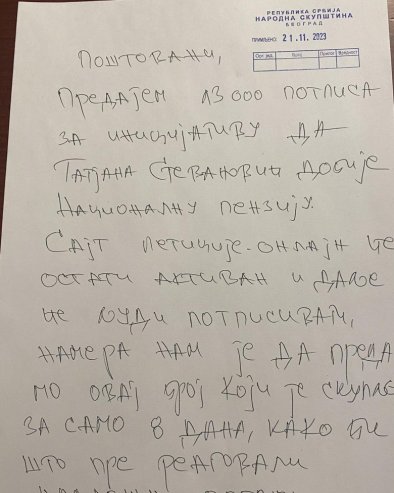 РЕПУБЛИКА СРБИЈА
НАРОДНА СКУПШТИНА
БЕОГРАД
ПРИМЉЕНО: 21.11.2023
Орг. јед. Број Прилог Вредност
ПОШТОВАНИ,
ПРЕДАЈЕМ 13 000 ПОТПИСА
ЗА ИНИЦИЈАТИВУ ДА
ТАТЈАНА СТЕВАНОВИЋ ДОБИЈЕ
НАЦИОНАЛНУ ПЕНЗИЈУ.
САЈТ ПЕТИЦИЈЕ.ОНЛАЈН ЋЕ
ОСТАТИ АКТИВАН И ДАЉЕ
ЋЕ ЉУДИ ПОТПИСИВАТИ,
НАМЕРА НАМ ЈЕ ДА ПРЕДА
МО ОВАЈ БРОЈ КОЈИ ЈЕ СКУПЉЕН
ЗА САМО 8 ДАНА, КАКО БИ
ШТО ПРЕ РЕАГОВАЛИ